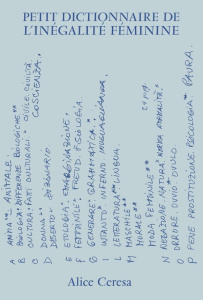 PETIT DICTIONNAIRE DE
L'INÉGALITÉ FÉMININE
A ANIMA ANIMALE.
B BIOLOGIA: DIFFERENZE BIOLOGICHE**
C CULTURA: FATTI CULTURALI CIVILE CIVILTÀ
COSCIENZA.
D DONNA
DESERTO DIZIONARIO
E
F FEMMINILE. FREUD FISIOLOGIA
G GENERARE. GRAMMATICA.*
I INFANTO INFERNO
L LETTERATURA** LINGUA
M MASCHILE**
MORALE**
MODA FEMMINILE**
N NEGAZIONE NATURA NORMA
O ORRORE OVVIO OVULO
P PENE PROSTITUZIONE PAURA
Alice Ceresa